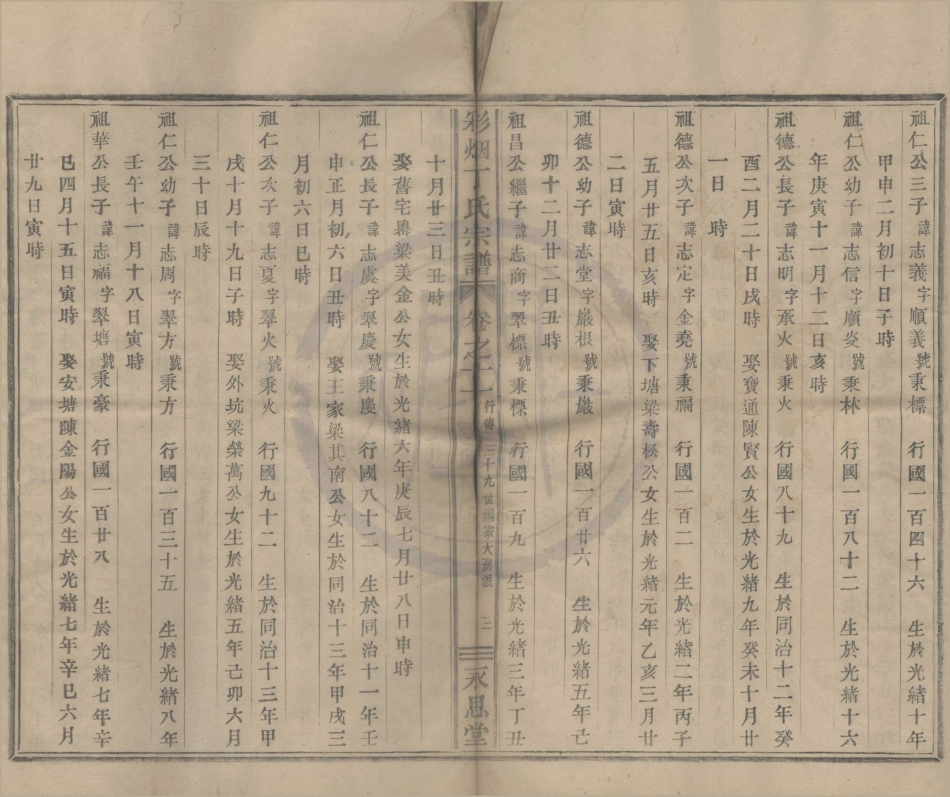 祖仁公三子諱志義字順義號秉標　行國一百四十六　生於光緒十年
甲申二月初十日子時
祖仁公幼子諱志信字順炎號秉林　行國一百八十二　生於光緒十六
年庚寅十一月十二日亥時
祖德公長子諱志明字承火號秉火　行國八十九　生於同治十二年癸
酉二月二十日戌時　娶寶通陳賢公女生於光緒九年癸未十月廿
一日　時
祖德公次子諱志定字金堯號秉福　行國一百二　生於光緒二年丙子
五月廿五日亥時　娶下塘梁壽松公女生於光緒元年乙亥三月廿
二日寅時
祖德公幼子諱志堂字嚴根號秉嚴　行國一百廿六　生於光緒五年己
卯十二月廿二日丑時
祖昌公繼子諱志商字翠標號秉標　行國一百九　生於光緒三年丁丑
彩烟丁氏宗譜　卷之　行傳　三十九世　三　永思堂
十月廿三日丑時
娶舊宅梁美金公女生於光緒六年庚辰七月廿八日申時
祖仁公長子諱志虞字翠慶號秉慶　行國八十二　生於同治十一年壬
申正月初六日丑時　娶王家梁其南公女生於同治十三年甲戌三
月初六日巳時
祖仁公次子諱志夏字翠火號秉火　行國九十二　生於同治十三年甲
戌十月十九日子時　娶外坑梁榮萬公女生於光緒五年己卯六月
三十日辰時
祖仁公幼子諱志周字翠方號秉方　行國一百三十五　生於光緒八年
壬午十一月十八日寅時
祖華公長子諱志福字翠塘號秉豪　行國一百廿八　生於光緒七年辛
巳四月十五日寅時　娶安塘陳金陽公女生於光緒七年辛巳六月
廿九日寅時